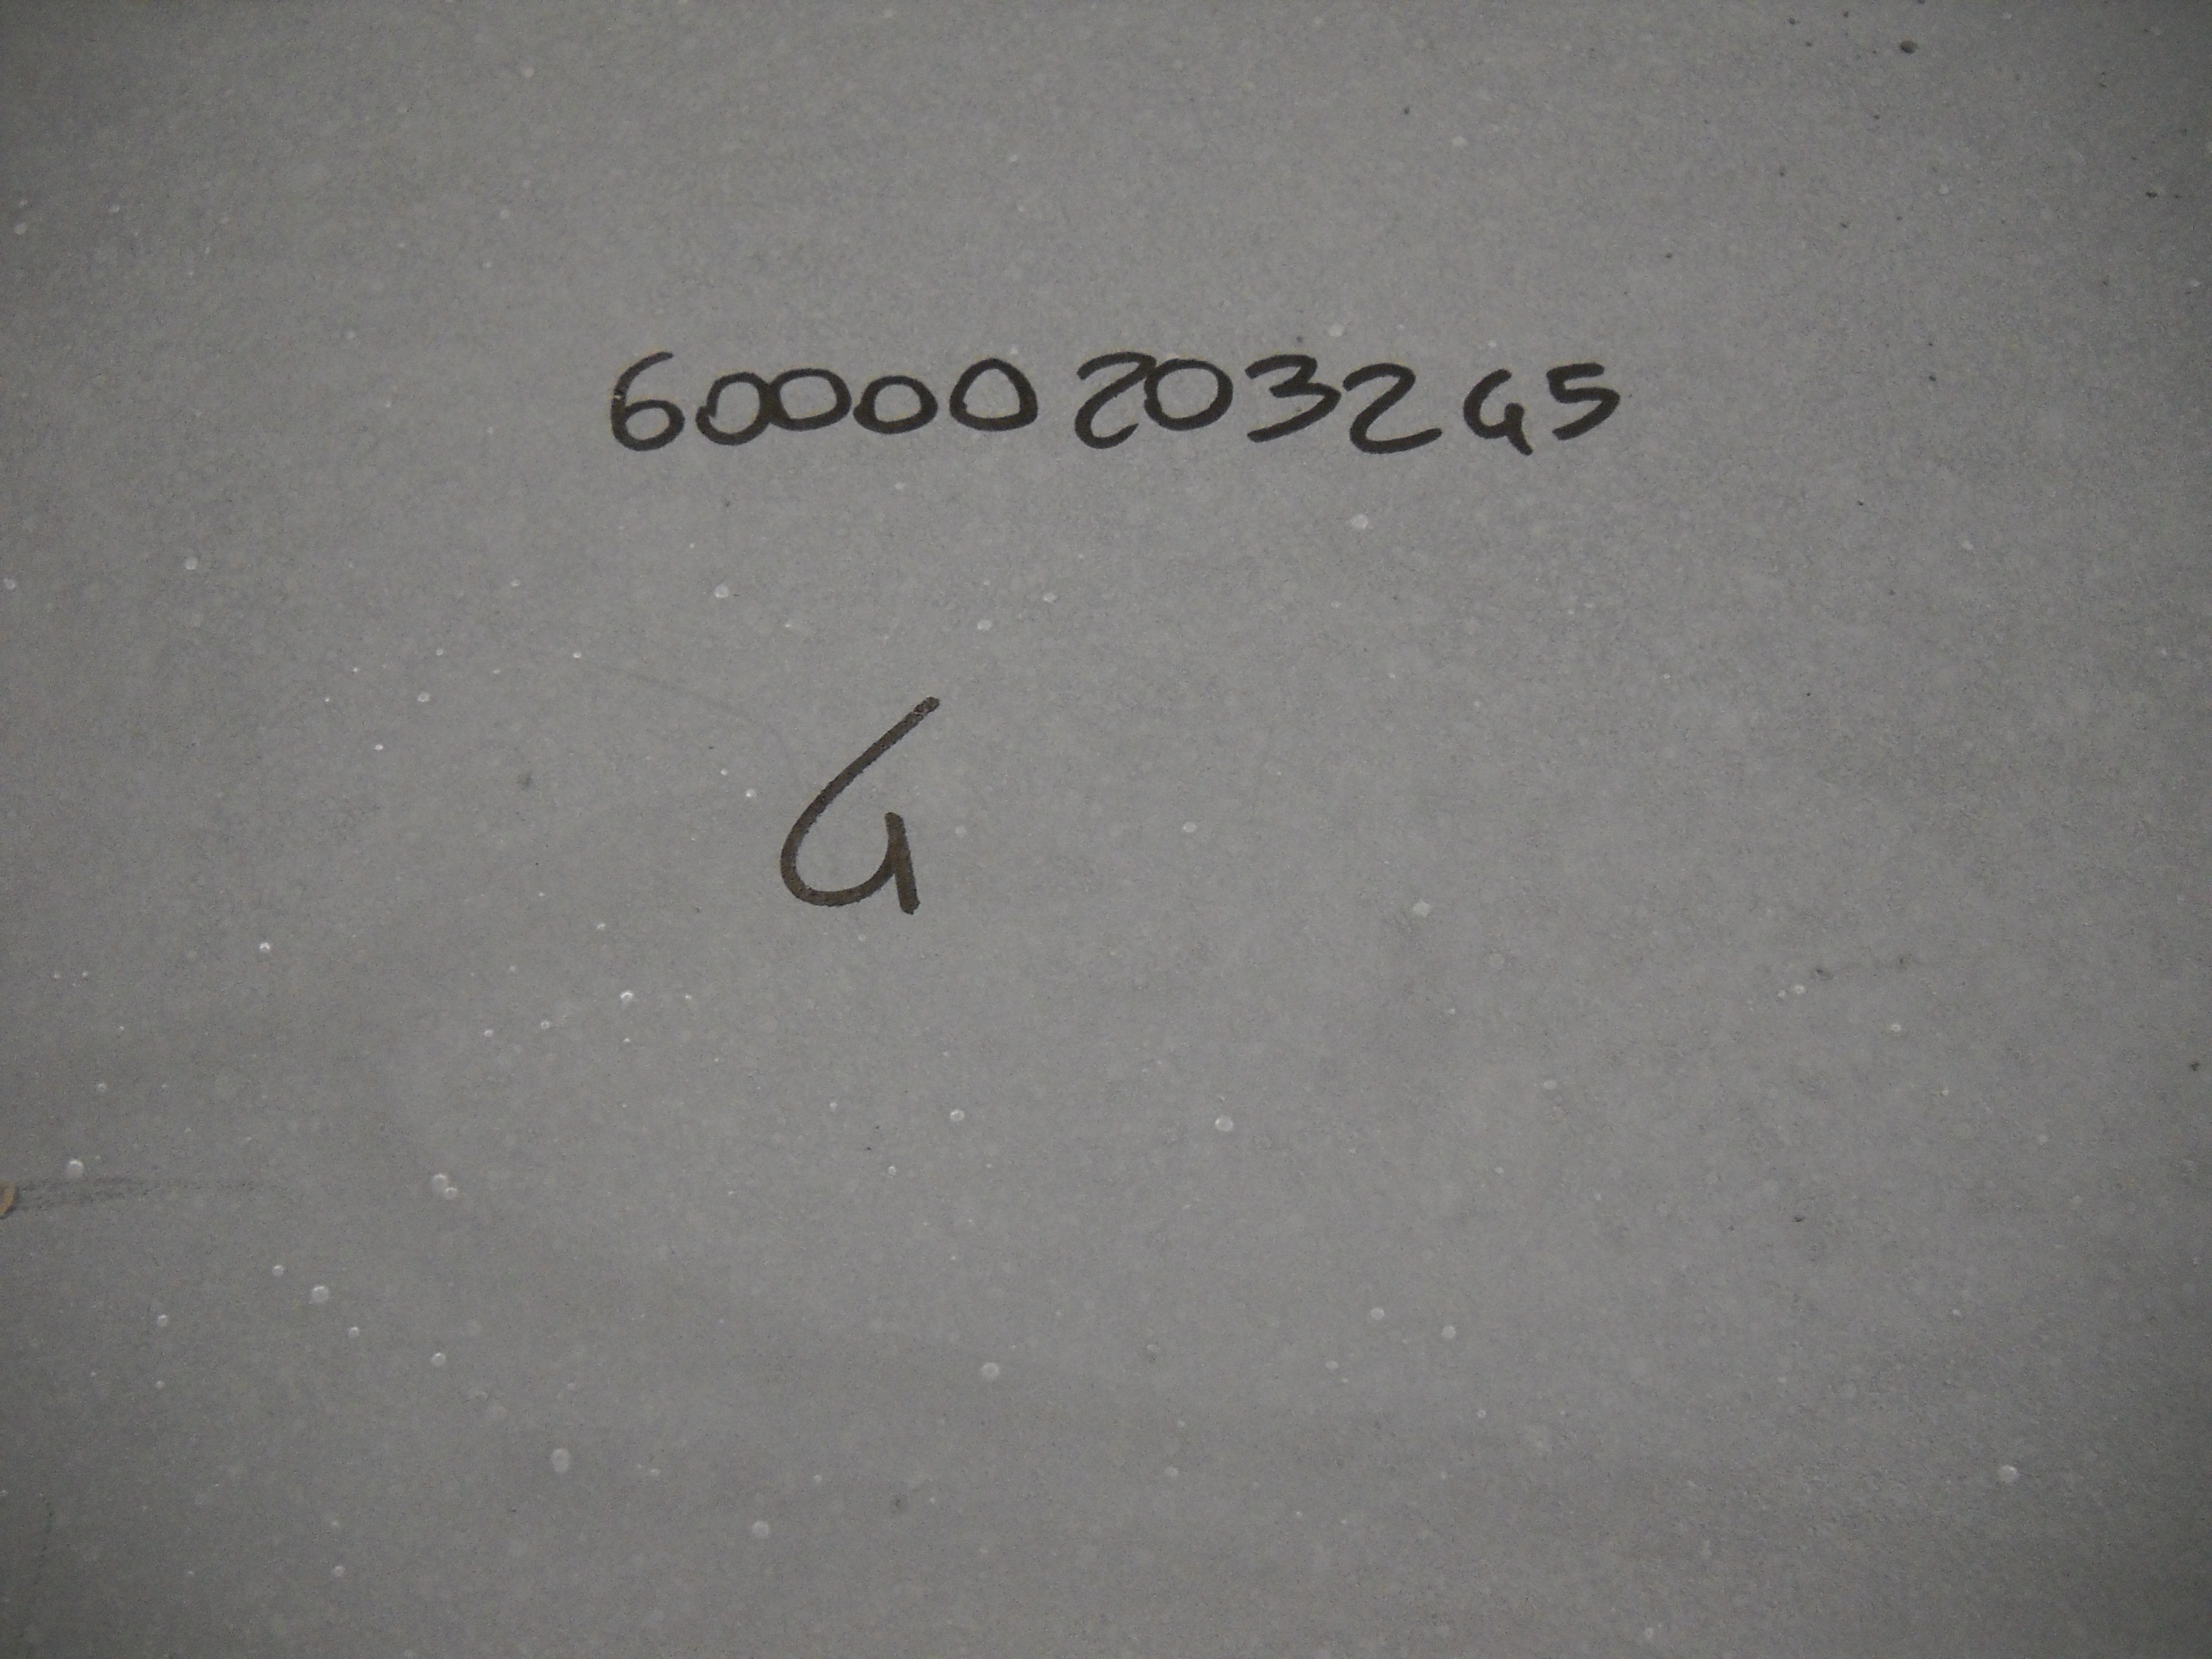 60000203245
4